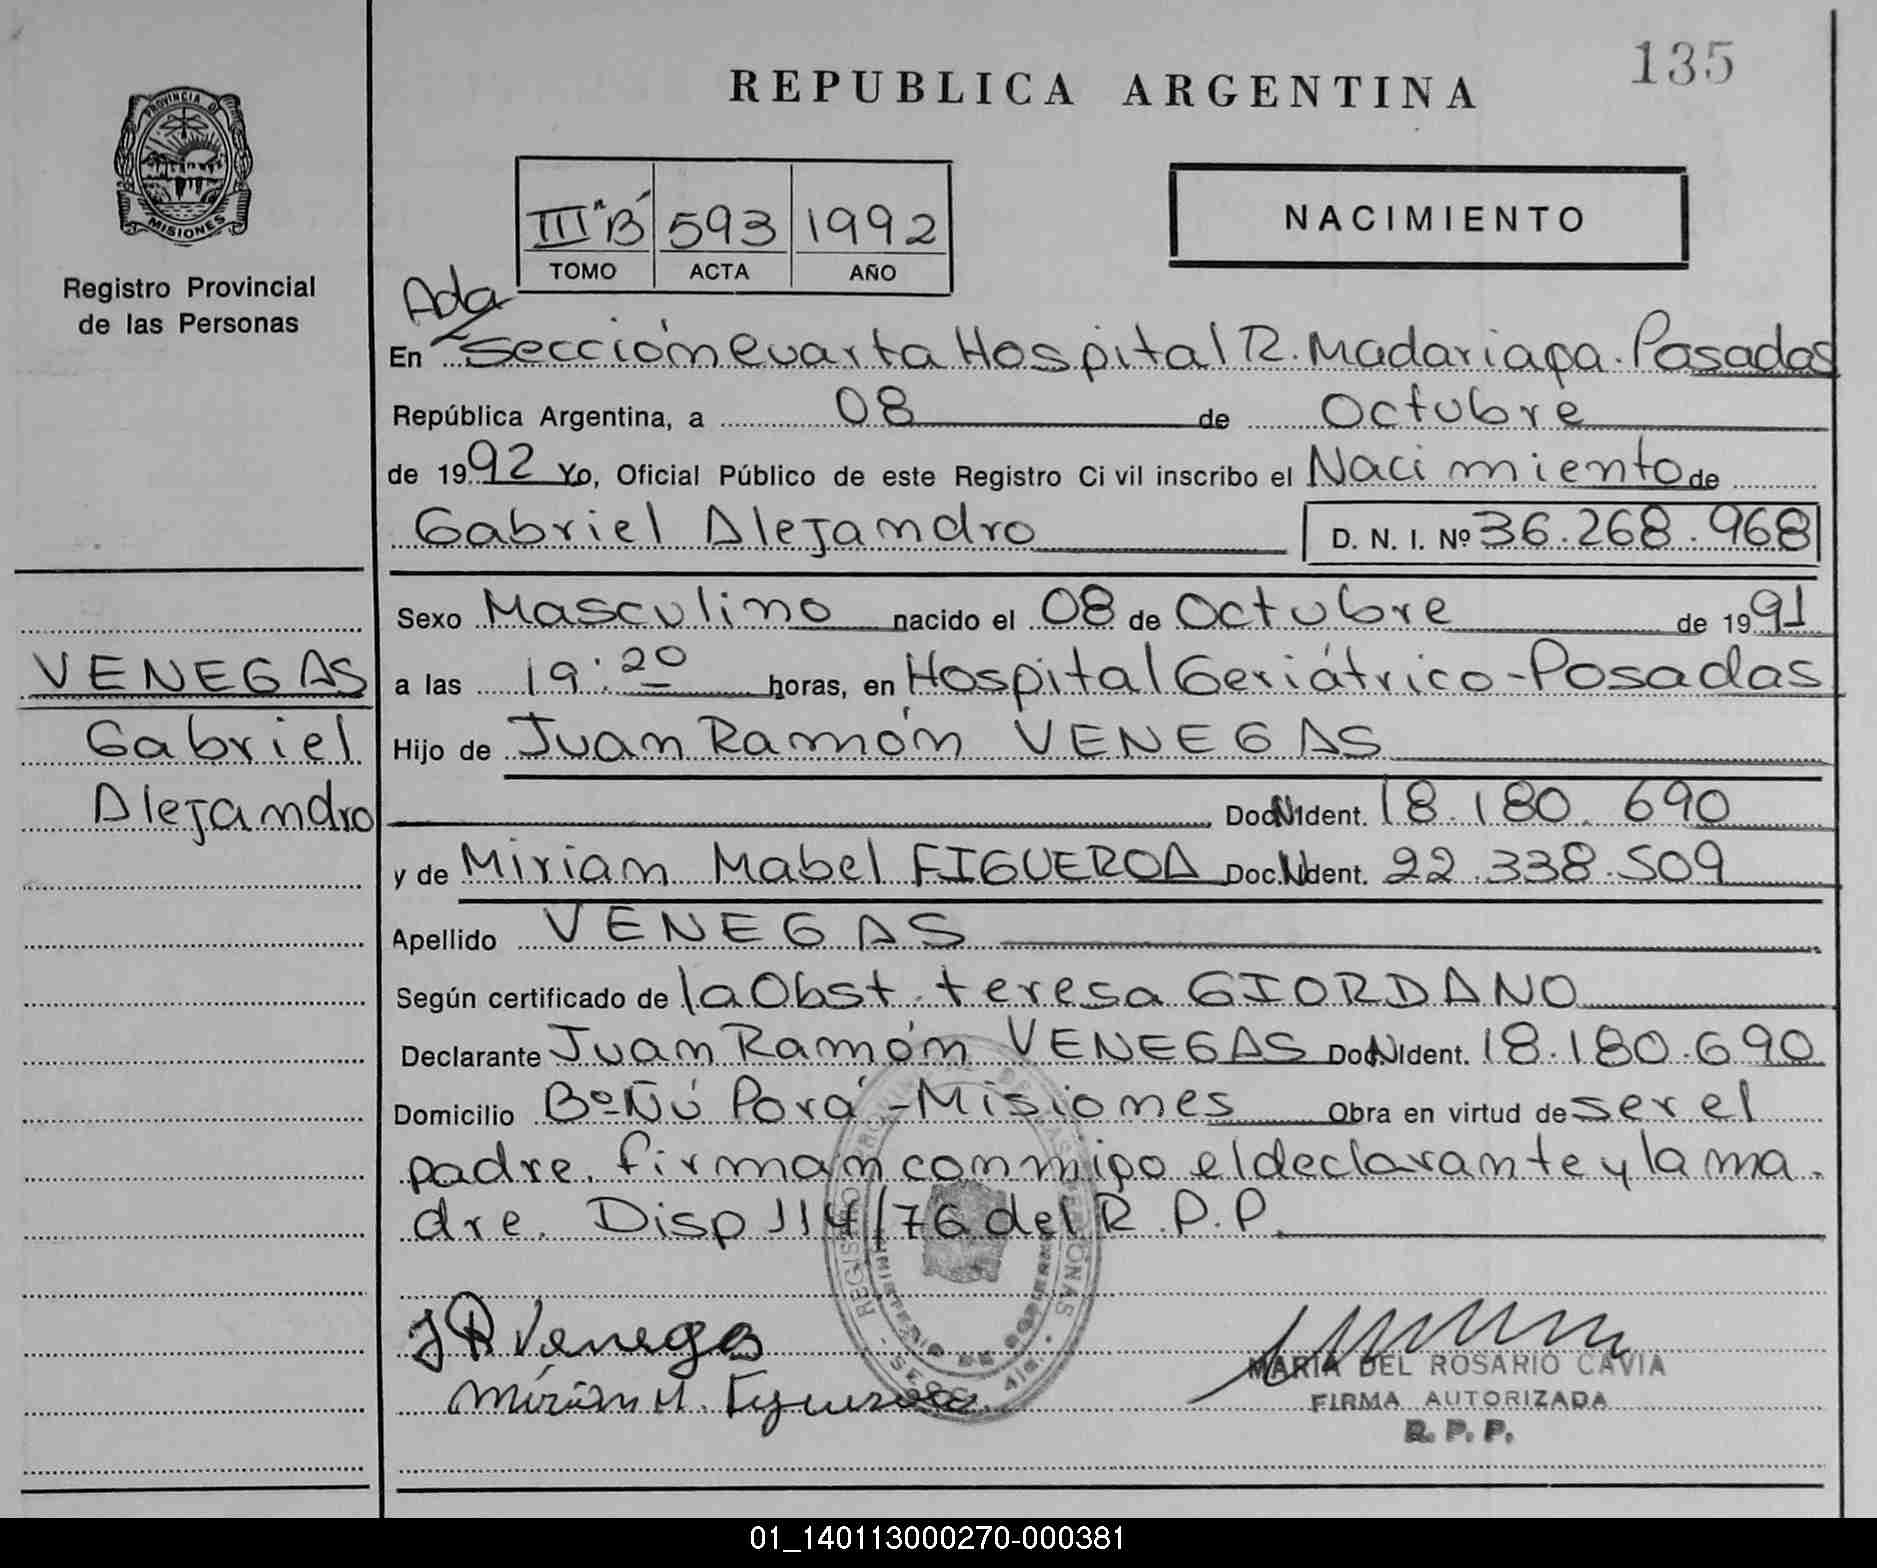 135
REPUBLICA ARGENTINA
PROVINCIA DE
MISIONES
Registro Provincial
de las Personas
III "B" 593 1992
TOMO ACTA AÑO
NACIMIENTO
Ada
En Sección Cuarta Hospital R. Madariaga. Posadas
República Argentina, a 08 de Octubre
de 1992 Yo, Oficial Público de este Registro Ci vil inscribo el Nacimiento de
Gabriel Alejandro D. N. I. Nº 36.268.968
Sexo Masculino nacido el 08 de Octubre de 1991
VENEGAS
a las 19:20 horas, en Hospital Geriátrico - Posadas
Gabriel
Hijo de Juan Ramón VENEGAS
Alejandro
Doc. N Ident. 18.180.690
y de Miriam Mabel FIGUEROA Doc. N Ident. 22.338.509
Apellido VENEGAS
Según certificado de la Obst. teresa GIORDANO
Declarante Juan Ramón VENEGAS Doc. N Ident. 18.180.690
Domicilio Bº Ñú Porá - Misiones Obra en virtud de ser el
padre. firman conmigo el declarante y la ma-
dre. Disp 114/76 del R.P.P.
JR Venegas
Miriam M. Figueroa
MARIA DEL ROSARIO CAVIA
FIRMA AUTORIZADA
R. P. P.
01_140113000270-000381